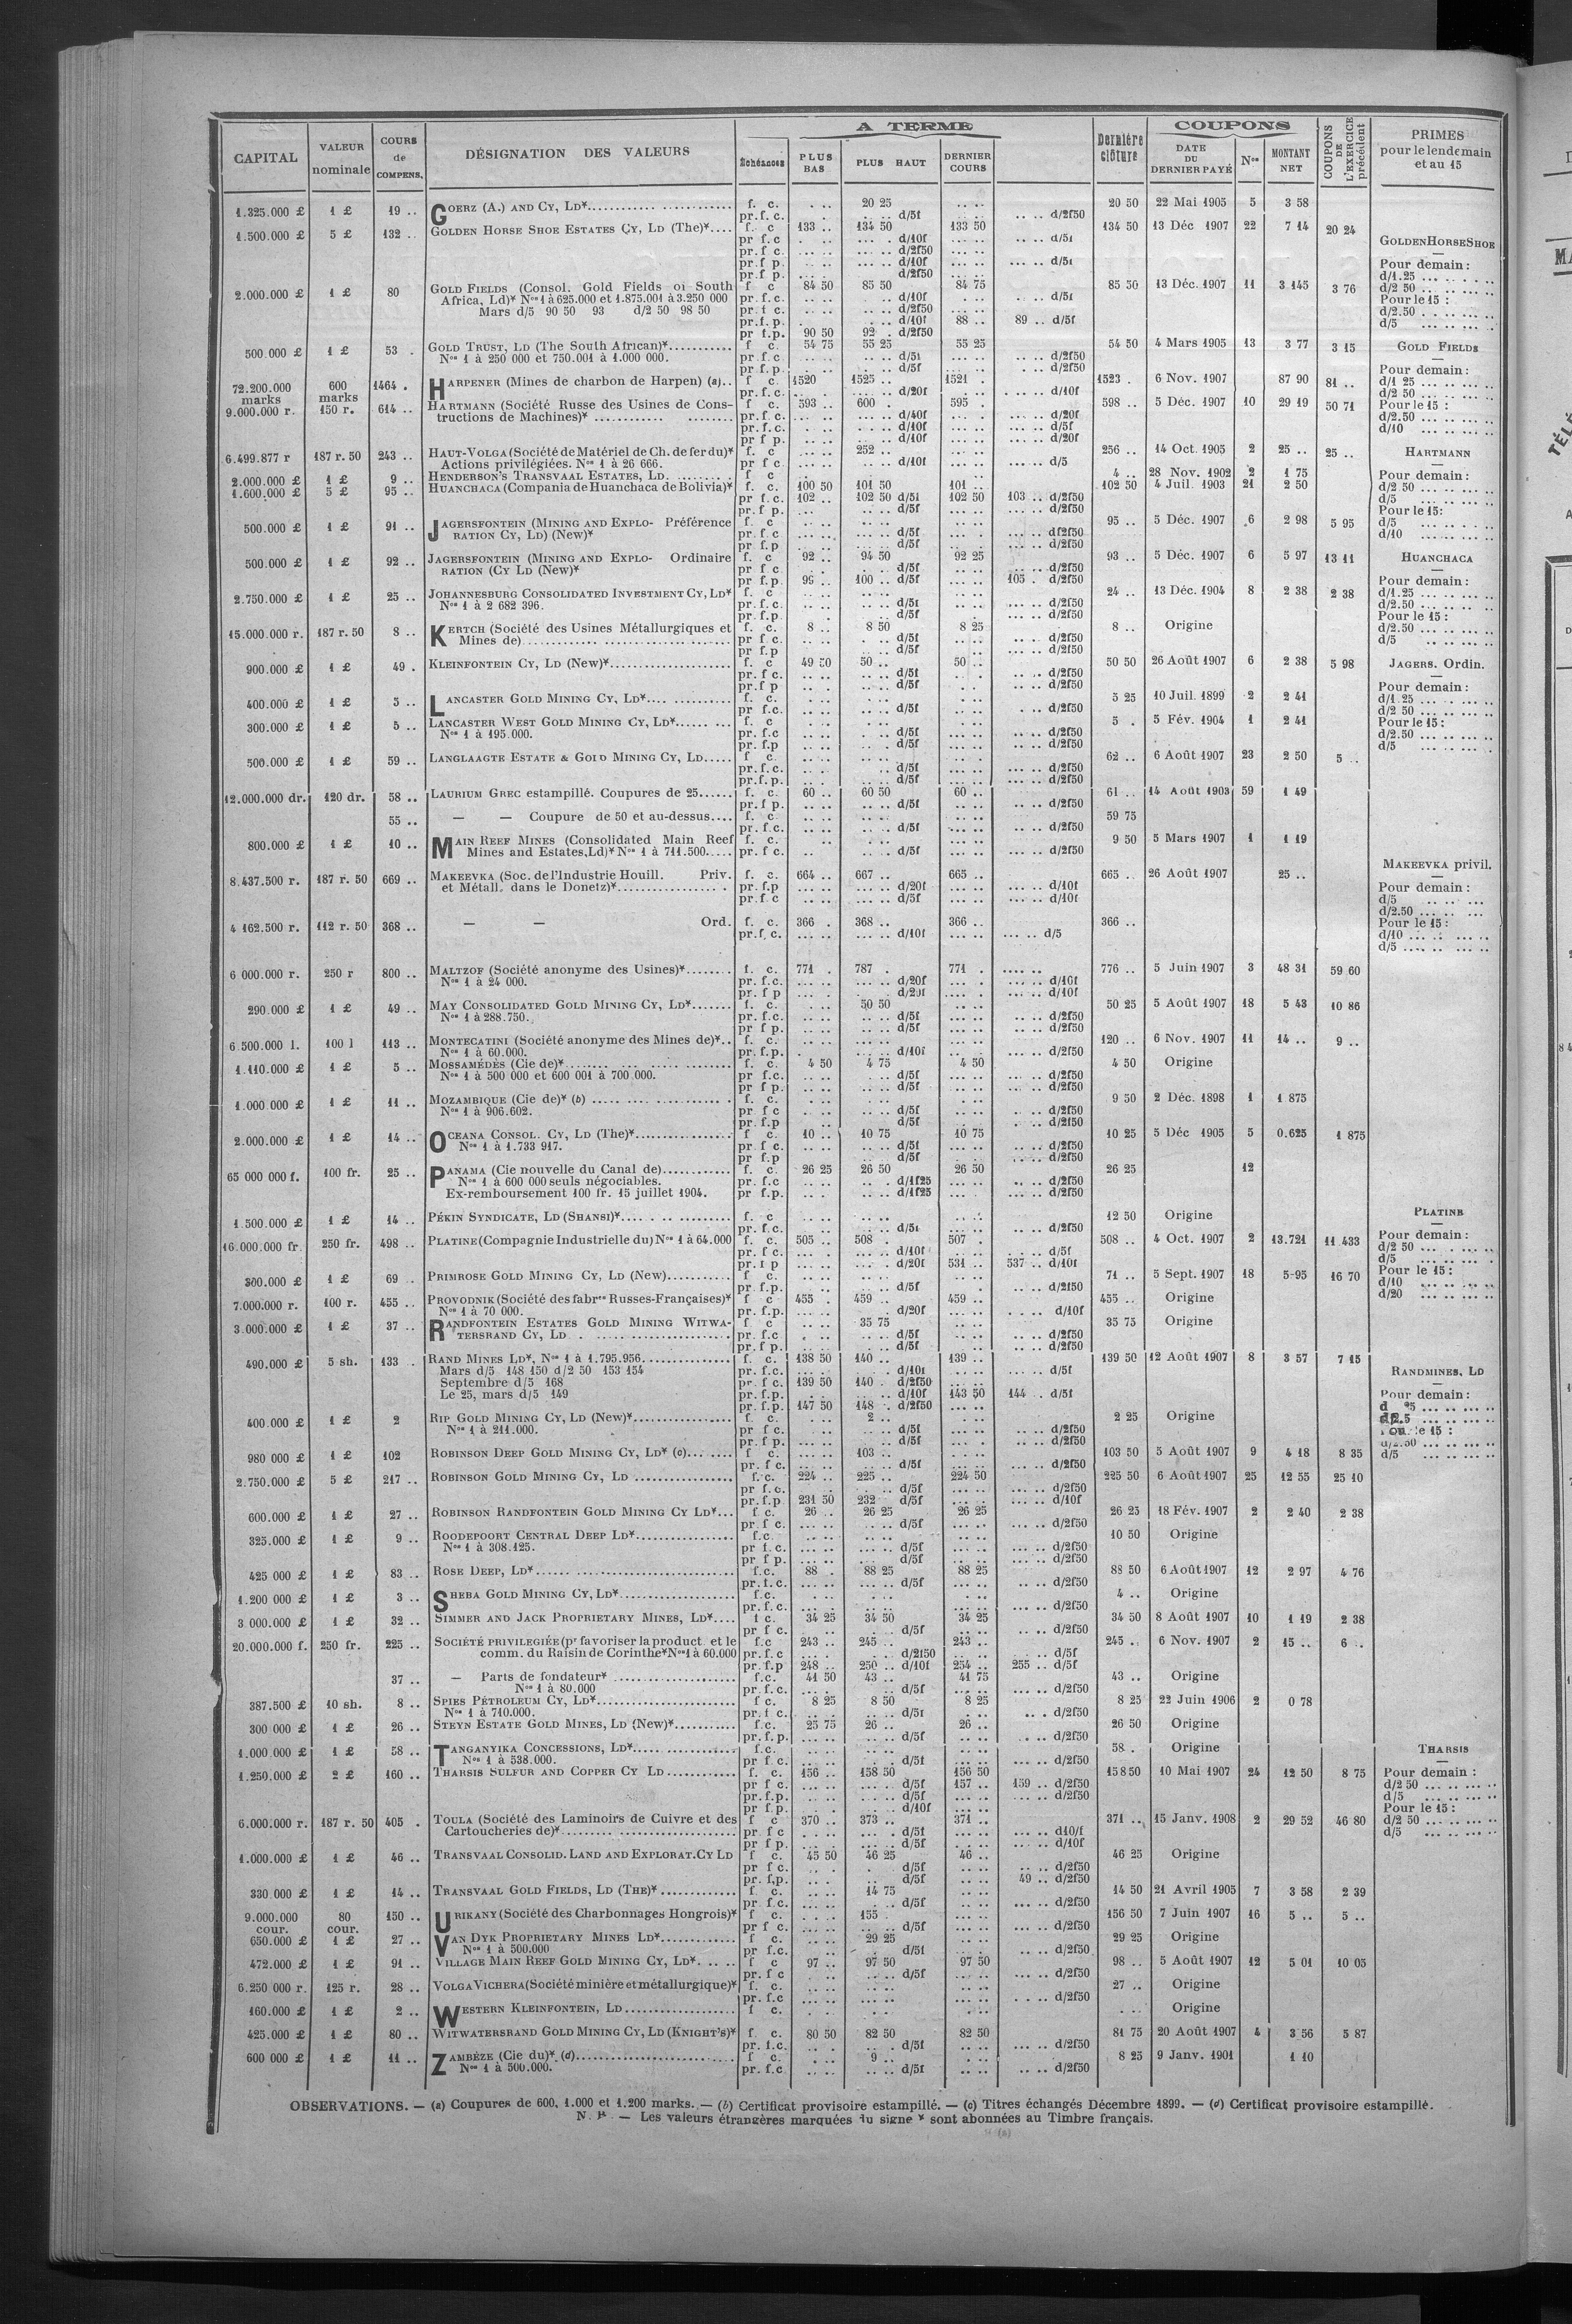 CAPITAL | VALEUR nominale | COURS de COMPENS. | DÉSIGNATION DES VALEURS | A TERME | Dernière clôture | COUPONS | COUPONS DE L'EXERCICE précédent | PRIMES pour le lendemain et au 15
Échéances | PLUS BAS | PLUS HAUT | DERNIER COURS | DATE DU DERNIER PAYÉ | Nos | MONTANT NET
1.325.000 £ | 1 £ | 19 .. | GOERZ (A.) AND CY, LD* | f. c. | 20 25 | 20 50 | 22 Mai 1905 | 5 | 3 58
pr.f.c. | d/5f | d/2f50
1.500.000 £ | 5 £ | 132 .. | GOLDEN HORSE SHOE ESTATES CY, LD (The)* | f. c | 133 .. | 134 50 | 133 50 | 134 50 | 13 Déc 1907 | 22 | 7 14 | 20 24
pr f.c | d/10f | d/5f
pr.f c. | d/2f50
pr.f p. | d/10f | d/5f
pr.f p. | d/2f50
2.000.000 £ | 1 £ | 80 | GOLD FIELDS (Consol. Gold Fields of South | f c | 84 50 | 85 50 | 84 75 | 85 50 | 13 Déc. 1907 | 11 | 3 145 | 3 76
Africa, Ld)* Nos 1 à 625.000 et 1.875.001 à 3.250 000 | pr.f.c. | d/10f | d/5f
Mars d/5 90 50 93 d/2 50 98 50 | pr.f c. | d/2f50
pr.f.p. | d/10f | 88 .. | 89 .. d/5f
pr f.p. | 90 50 | 92 . d/2f50
500.000 £ | 1 £ | 53 . | GOLD TRUST, LD (The South African)* | f c. | 54 75 | 55 25 | 55 25 | 54 50 | 4 Mars 1905 | 13 | 3 77 | 3 15
Nos 1 à 250 000 et 750.001 à 1.000 000. | pr.f c | d/5f | d/2f50
pr.f p. | d/5f | d/2f50
72.200.000 marks | 600 marks | 1464 . | HARPENER (Mines de charbon de Harpen) (a) | f c. | 1520 | 1525 .. | 1521 . | 1523 . | 6 Nov. 1907 | 87 90 | 81 ..
pr.f.c. | d/20f | d/10f
9.000.000 r. | 150 r. | 614 .. | HARTMANN (Société Russe des Usines de Cons- | f c. | 593 .. | 600 . | 595 . | 598 .. | 5 Déc. 1907 | 10 | 29 19 | 50 71
tructions de Machines)* | pr.f.c. | d/40f | d/20f
pr.f.c. | d/10f | d/5f
pr f p. | d/10f | d/20f
6.499.877 r | 187 r. 50 | 243 .. | HAUT-VOLGA (Société de Matériel de Ch. de fer du)* | f. c | 252 .. | 256 .. | 14 Oct. 1905 | 2 | 25 .. | 25 ..
Actions privilégiées. Nos 1 à 26 666. | pr f c. | d/10f | d/5
2.000.000 £ | 1 £ | 9 .. | HENDERSON'S TRANSVAAL ESTATES, LD. | f c | 4 .. | 28 Nov. 1902 | 2 | 1 75
1.600.000 £ | 5 £ | 95 .. | HUANCHACA (Compania de Huanchaca de Bolivia)* | f. c. | 100 50 | 101 50 | 101 .. | 102 50 | 4 Juil. 1903 | 21 | 2 50
pr f.c. | 102 .. | 102 50 d/5f | 102 50 | 103 .. d/2f50
pr.f p. | d/5f | d/2f50
500.000 £ | 1 £ | 91 .. | JAGERSFONTEIN (MINING AND EXPLO- Préférence | f. c | 95 .. | 5 Déc. 1907 | 6 | 2 98 | 5 95
RATION CY, LD) (New)* | pr. f c | d/5f | df2f50
pr. f.p | d/5f | d/2f50
500.000 £ | 1 £ | 92 .. | JAGERSFONTEIN (MINING AND EXPLO- Ordinaire | f. c | 92 .. | 94 50 | 92 25 | 93 .. | 5 Déc. 1907 | 6 | 5 97 | 13 11
RATION (CY LD (New)* | pr f c | d/5f | d/2f50
pr f.p. | 100 .. d/5f | d/2f50
2.750.000 £ | 1 £ | 25 .. | JOHANNESBURG CONSOLIDATED INVESTMENT CY, LD* | f. c | 24 .. | 13 Déc. 1904 | 8 | 2 38 | 2 38
Nos 1 à 2 682 396. | pr.f.c. | d/5f | d/2f50
pr.f.p. | d/5f | d/2f50
15.000.000 r. | 187 r. 50 | 8 .. | KERTCH (Société des Usines Métallurgiques et | f. c. | 8 .. | 8 50 | 8 25 | 8 .. | Origine
Mines de) | pr f c. | d/5f | d/2f50
pr f.p | d/5f | d/2f50
900.000 £ | 1 £ | 49 . | KLEINFONTEIN CY, LD (New)* | f. c | 49 50 | 50 .. | 50 .. | 50 50 | 26 Août 1907 | 6 | 2 38 | 5 98
pr.f c. | d/5f | d/2f50
pr.f p | d/5f | d/2f50
400.000 £ | 1 £ | 5 .. | LANCASTER GOLD MINING CY, LD* | f. c. | 5 25 | 10 Juil. 1899 | 2 | 2 41
pr f.c. | d/5f | d/2f50
300.000 £ | 1 £ | 5 .. | LANCASTER WEST GOLD MINING CY, LD* | f. c | 5 . | 5 Fév. 1904 | 1 | 2 41
Nos 1 à 195.000. | pr. f.c | d/5f | d/2f50
pr. f.p | d/5f | d/2f50
500.000 £ | 1 £ | 59 .. | LANGLAAGTE ESTATE & GOLD MINING CY, LD | f c. | 62 .. | 6 Août 1907 | 23 | 2 50 | 5 ..
pr.f.c. | d/5f | d/2f50
pr.f.p. | d/5f | d/2f50
12.000.000 dr. | 120 dr. | 58 .. | LAURIUM GREC estampillé. Coupures de 25 | f. c. | 60 .. | 60 50 | 60 .. | 61 .. | 14 Août 1903 | 59 | 1 49
pr.f p. | d/5f | d/2f50
55 .. | — — Coupure de 50 et au-dessus | f. c. | 59 75
pr. f.c. | d/5f | d/2f50
800.000 £ | 1 £ | 10 .. | MAIN REEF MINES (Consolidated Main Reef | f. c. | 9 50 | 5 Mars 1907 | 1 | 1 19
Mines and Estates, Ld)* Nos 1 à 711.500 | pr. f c. | d/5f | d/2f50
8.437.500 r. | 187 r. 50 | 669 .. | MAKEEVKA (Soc. de l'Industrie Houill. Priv. | f. c. | 664 .. | 667 .. | 665 .. | 665 .. | 26 Août 1907 | 25 ..
et Métall. dans le Donetz)* | pr. f.p | d/20f | d/10f
pr.f c | d/5f | d/10f
4 162.500 r. | 112 r. 50 | 368 .. | — — Ord. | f. c. | 366 . | 368 .. | 366 .. | 366 ..
pr.f.c. | d/10f | d/5
6 000.000 r. | 250 r | 800 .. | MALTZOF (Société anonyme des Usines)* | f. c. | 771 . | 787 . | 771 . | 776 .. | 5 Juin 1907 | 3 | 48 31 | 59 60
Nos 1 à 24 000. | pr. f.c. | d/20f | d/10f
pr. f p | d/20f | d/10f
290.000 £ | 1 £ | 49 .. | MAY CONSOLIDATED GOLD MINING CY, LD* | f. c. | 50 50 | 50 25 | 5 Août 1907 | 18 | 5 43 | 10 86
Nos 1 à 288.750. | pr.f.c. | d/5f | d/2f50
pr f p. | d/5f | d/2f50
6.500.000 l. | 100 l | 113 .. | MONTECATINI (Société anonyme des Mines de)* | f. c. | 120 .. | 6 Nov. 1907 | 11 | 14 .. | 9 ..
Nos 1 à 60.000. | pr. f.p. | d/10f | d/2f50
1.110.000 £ | 1 £ | 5 .. | MOSSAMÉDÈS (Cie de)* | f. c. | 4 50 | 4 75 | 4 50 | 4 50 | Origine
Nos 1 à 500 000 et 600 001 à 700 000. | pr f.c. | d/5f | d/2f50
pr f p. | d/5f | d/2f50
1.000.000 £ | 1 £ | 11 .. | MOZAMBIQUE (Cie de)* (b) | f. c. | 9 50 | 2 Déc. 1898 | 1 | 1 875
Nos 1 à 906.602. | pr. f c | d/5f | d/2f50
pr. f.p | d/5f | d/2f50
2.000.000 £ | 1 £ | 14 .. | OCEANA CONSOL. CY, LD (The)* | f c. | 10 .. | 10 75 | 10 75 | 10 25 | 5 Déc 1905 | 5 | 0.625 | 1 875
Nos 1 à 1.733 917. | pr f c. | d/5f | d/2f50
pr f.p | d/5f | d/2f50
65 000 000 f. | 100 fr. | 25 .. | PANAMA (Cie nouvelle du Canal de) | f. c. | 26 25 | 26 50 | 26 50 | 26 25 | 12
Nos 1 à 600 000 seuls négociables. | pr. f.c | d/1f25 | d/2f50
Ex-remboursement 100 fr. 15 juillet 1904. | pr f.p. | d/1f25 | d/2f50
1.500.000 £ | 1 £ | 14 .. | PÉKIN SYNDICATE, LD (SHANSI)* | f. c | 12 50 | Origine
pr. f.c. | d/5f | d/2f50
16.000.000 fr. | 250 fr. | 498 .. | PLATINE (Compagnie Industrielle du) Nos 1 à 64.000 | f. c. | 505 .. | 508 . | 507 . | 508 .. | 4 Oct. 1907 | 2 | 13.721 | 11 433
pr. f c. | d/10f | d/5f
pr. f p | d/20f | 531 .. | 537 .. d/10f
300.000 £ | 1 £ | 69 .. | PRIMROSE GOLD MINING CY, LD (New) | f c. | 71 .. | 5 Sept. 1907 | 18 | 5-95 | 16 70
pr. f.p. | d/5f | d/2f50
7.000.000 r. | 100 r. | 455 .. | PROVODNIK (Société des fabres Russes-Françaises)* | f c | 455 . | 459 .. | 459 .. | 455 .. | Origine
Nos 1 à 70 000. | pr. f.p. | d/20f | d/10f
3.000.000 £ | 1 £ | 37 .. | RANDFONTEIN ESTATES GOLD MINING WITWA- | f. c | 35 75 | 35 75 | Origine
TERSRAND CY, LD | pr. f.c | d/5f | d/2f50
pr. f p. | d/5f | d/2f50
490.000 £ | 5 sh. | 133 .. | RAND MINES LD*, Nos 1 à 1.795.956 | f. c. | 138 50 | 140 .. | 139 .. | 139 50 | 12 Août 1907 | 8 | 3 57 | 7 15
Mars d/5 148 150 d/2 50 153 154 | pr. f.c. | d/10f | d/5f
Septembre d/5 168 | pr. f c | 139 50 | 140 . d/2f50
Le 25, mars d/5 149 | pr.f.p. | d/10f | 143 50 | 144 .. d/5f
pr. f.p. | 147 50 | 148 . d/2f50
400.000 £ | 1 £ | 2 | RIP GOLD MINING CY, LD (New)* | f. c. | 2 .. | 2 25 | Origine
Nos 1 à 211.000. | pr f c. | d/5f | d/2f50
pr. f p. | d/5f | d/2f50
980 000 £ | 1 £ | 102 | ROBINSON DEEP GOLD MINING CY, LD* (c) | f c. | 103 .. | 103 50 | 5 Août 1907 | 9 | 4 18 | 8 35
pr. f c. | d/5f | d/2f50
2.750.000 £ | 5 £ | 217 .. | ROBINSON GOLD MINING CY, LD | f. c. | 224 .. | 225 .. | 224 50 | 225 50 | 6 Août 1907 | 25 | 12 55 | 25 10
pr f.c. | d/5f | d/2f50
pr. f.p | 231 50 | 232 d/5f | d/10f
600.000 £ | 1 £ | 27 .. | ROBINSON RANDFONTEIN GOLD MINING CY LD* | f c. | 26 .. | 26 25 | 26 25 | 26 25 | 18 Fév. 1907 | 2 | 2 40 | 2 38
pr. f c. | d/5f | d/2f50
325.000 £ | 1 £ | 9 .. | ROODEPOORT CENTRAL DEEP LD* | f.c. | 10 50 | Origine
Nos 1 à 308.125. | pr f.c. | d/5f | d/2f50
pr f p. | d/5f | d/2f50
425 000 £ | 1 £ | 83 .. | ROSE DEEP, LD* | f.c. | 88 . | 88 25 | 88 25 | 88 50 | 6 Août 1907 | 12 | 2 97 | 4 76
pr. f.c. | d/5f | d/2f50
1.200 000 £ | 1 £ | 3 .. | SHEBA GOLD MINING CY, LD* | f.c. | 4 .. | Origine
pr. f.c. | d/2f50
3 000.000 £ | 1 £ | 32 .. | SIMMER AND JACK PROPRIETARY MINES, LD* | f c. | 34 25 | 34 50 | 34 25 | 34 50 | 8 Août 1907 | 10 | 1 19 | 2 38
pr f c. | d/5f | d/2f50
20.000.000 f. | 250 fr. | 225 .. | SOCIÉTÉ PRIVILEGIÉE (pr favoriser la product et le | f.c | 243 .. | 245 .. | 243 .. | 245 .. | 6 Nov. 1907 | 2 | 15 .. | 6 ..
comm. du Raisin de Corinthe* Nos 1 à 60.000 | pr. f.c | d/2f50 | d/5f
pr. f.p | 248 .. | 250 .. d/10f | 254 .. | 255 .. d/5f
37 .. | — Parts de fondateur* | f.c. | 41 50 | 43 .. | 41 75 | 43 .. | Origine
Nos 1 à 80.000 | pr. f.c. | d/5f | d/2f50
387.500 £ | 10 sh. | 8 .. | SPIES PÉTROLEUM CY, LD* | f c. | 8 25 | 8 50 | 8 25 | 8 25 | 22 Juin 1906 | 2 | 0 78
Nos 1 à 710.000. | pr. f c. | d/5f | d/2f50
300 000 £ | 1 £ | 26 .. | STEYN ESTATE GOLD MINES, LD (New)* | f.c. | 25 75 | 26 .. | 26 .. | 26 50 | Origine
pr. f.p. | d/5f | d/2f50
1.000.000 £ | 1 £ | 58 .. | TANGANYIKA CONCESSIONS, LD* | f.c. | 58 . | Origine
Nos 1 à 538.000. | pr f.c. | d/5f | d/2f50
1.250.000 £ | 2 £ | 160 .. | THARSIS SULFUR AND COPPER CY LD | f. c. | 156 .. | 158 50 | 156 50 | 158 50 | 10 Mai 1907 | 24 | 12 50 | 8 75
pr f c. | d/5f | 157 .. | 159 .. d/2f50
pr. f.p. | d/5f | d/2f50
pr f.p. | d/10f
6.000.000 r. | 187 r. 50 | 405 . | TOULA (Société des Laminoirs de Cuivre et des | f c | 370 .. | 373 .. | 371 .. | 371 .. | 15 Janv. 1908 | 2 | 29 52 | 46 80
Cartoucheries de)* | pr. f c | d/5f | d10/f
pr f p. | d/5f | d/10f
1.000.000 £ | 1 £ | 46 .. | TRANSVAAL CONSOLID. LAND AND EXPLORAT. CY LD | f c. | 45 50 | 46 25 | 46 .. | 46 25 | Origine
pr f c. | d/5f | d/2f50
pr. f.p. | d/5f | 49 .. d/2f50
330 000 £ | 1 £ | 14 .. | TRANSVAAL GOLD FIELDS, LD (THE)* | f. c. | 14 75 | 14 50 | 21 Avril 1905 | 7 | 3 58 | 2 39
pr. f.c. | d/5f | d/2f50
9.000.000 cour. | 80 cour. | 150 .. | URIKANY (Société des Charbonnages Hongrois)* | f c. | 155 | 156 50 | 7 Juin 1907 | 16 | 5 .. | 5 ..
pr f c. | d/5f | d/2f50
650.000 £ | 1 £ | 27 .. | VAN DYK PROPRIETARY MINES LD* | f c. | 29 25 | 29 25 | Origine
Nos 1 à 500.000 | pr f.c. | d/5f | d/2f50
472.000 £ | 1 £ | 91 .. | VILLAGE MAIN REEF GOLD MINING CY, LD* | f c | 97 .. | 97 50 | 97 50 | 98 .. | 5 Août 1907 | 12 | 5 01 | 10 05
pr. f c | d/5f | d/2f50
6.250 000 r. | 125 r. | 28 .. | VOLGA VICHERA (Société minière et métallurgique)* | f. c. | 27 .. | Origine
pr. f.c | d/2f50
160.000 £ | 1 £ | 2 .. | WESTERN KLEINFONTEIN, LD | f c. | Origine
425.000 £ | 1 £ | 80 .. | WITWATERSRAND GOLD MINING CY, LD (KNIGHT'S)* | f c. | 80 50 | 82 50 | 82 50 | 81 75 | 20 Août 1907 | 4 | 3 56 | 5 87
pr. f.c. | d/5f | d/2f50
600 000 £ | 1 £ | 11 .. | ZAMBÈZE (Cie du)* (d) | f c. | 9 .. | 8 25 | 9 Janv. 1901 | 1 10
Nos 1 à 500.000. | pr. f.c | d/5f | d/2f50
GOLDEN HORSE SHOE
Pour demain :
d/1.25
d/2 50
Pour le 15 :
d/2.50
d/5
GOLD FIELDS
Pour demain :
d/1 25
d/2 50
Pour le 15 :
d/2.50
d/10
HARTMANN
Pour demain :
d/2 50
d/5
Pour le 15:
d/5
d/10
HUANCHACA
Pour demain :
d/1.25
d/2.50
Pour le 15 :
d/2.50
d/5
JAGERS. Ordin.
Pour demain :
d/1.25
d/2 50
Pour le 15 :
d/2.50
d/5
MAKEEVKA privil.
Pour demain :
d/5
d/2.50
Pour le 15 :
d/10
d/5
PLATINE
Pour demain :
d/2 50
d/5
Pour le 15 :
d/10
d/20
RANDMINES, LD
Pour demain :
le 15 :
d/2.50
d/5
THARSIS
Pour demain :
d/2 50
d/5
Pour le 15 :
d/2 50
d/5
OBSERVATIONS. — (a) Coupures de 600, 1.000 et 1.200 marks. — (b) Certificat provisoire estampillé. — (c) Titres échangés Décembre 1899. — (d) Certificat provisoire estampillé.
N. B. — Les valeurs étrangères marquées du signe * sont abonnées au Timbre français.